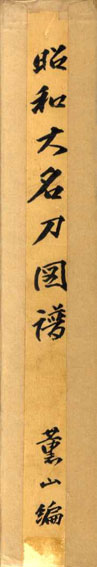 昭和大名刀図譜
薫山編